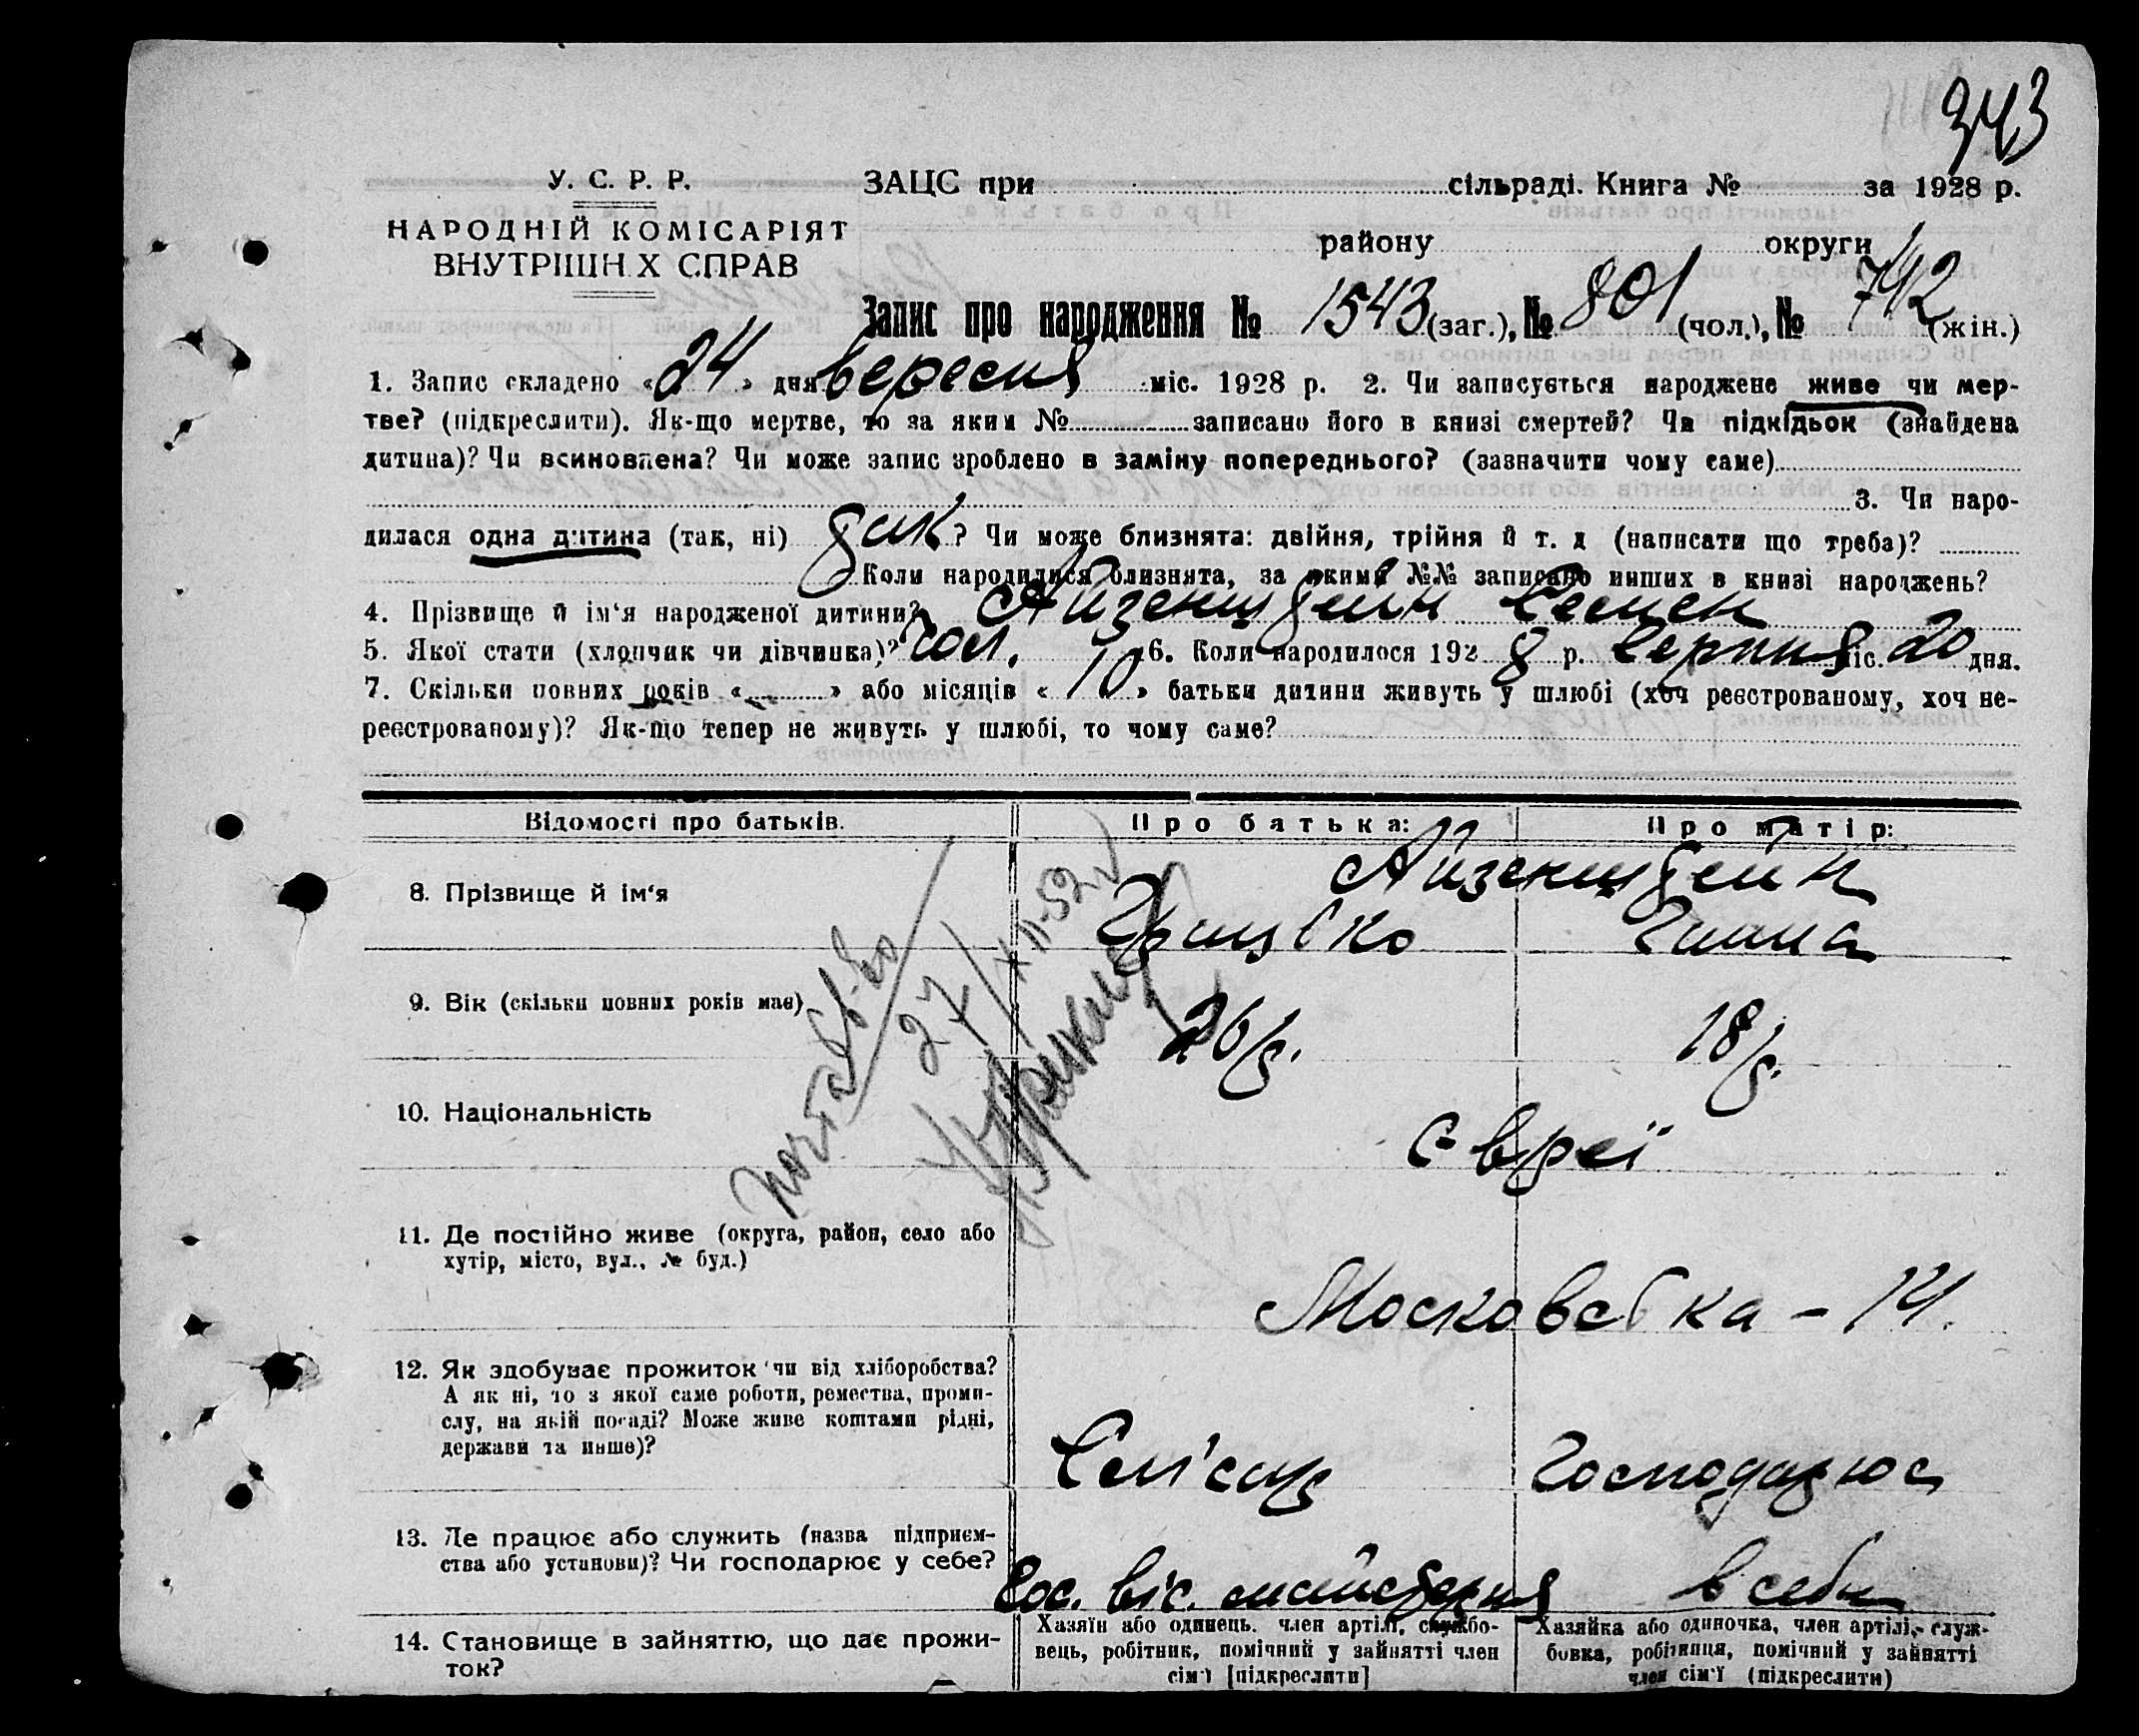 343
У. С. Р. Р.
НАРОДНІЙ КОМІСАРІЯТ
ВНУТРІШН Х СПРАВ
ЗАЦС при сільраді. Книга № за 1928 р.
району округи
Запис про народження № 1543 (заг.), № 801 (чол.), № 742 (жін.)
1. Запис складено «24» дня вересня міс. 1928 р. 2. Чи записується народжене живе чи мер-
тве? (підкреслити). Як-що мертве, то за яким № записано його в книзі смертей? Чи підкідьок (знайдена
дитина)? Чи всиновлена? Чи може запис зроблено в заміну попереднього? (зазначити чому саме)
3. Чи наро-
дилася одна дитина (так, ні) так? Чи може близнята: двійня, трійня й т. д (написати що треба)?
Коли народилися близнята, за якими №№ записано инших в книзі народжень?
4. Прізвище й ім‘я народженої дитини? Айзенштейн Семен
5. Якої стати (хлопчик чи дівчинка)? чол. 6. Коли народилося 1928 р. серпня міс. 20 дня.
7. Скільки повних років «» або місяців «10» батьки дитини живуть у шлюбі (хоч реєстрованому, хоч не-
реєстрованому)? Як-що тепер не живуть у шлюбі, то чому саме?
Відомості про батьків. Про батька: Про матір:
Айзенштейн
8. Прізвище й ім‘я
9. Вік (скільки повних років має) 26 р. 18 р.
27/XII-52
10. Національність Євреї
11. Де постійно живе (округа, район, село або
хутір, місто, вул., № буд.)
Московська - 14.
12. Як здобуває прожиток чи від хліборобства?
А як ні, то з якої саме роботи, ремества, проми-
слу, на якій посаді? Може живе коштами рідні,
держави та инше)?
господарює
13. Де працює або служить (назва підприєм-
ства або установи)? Чи господарює у себе?
віс. майстерня в себе
14. Становище в зайняттю, що дає прожи-
ток?
Хазяїн або одинець. член артілі, службо-
вець, робітник, помічний у зайнятті член
сім‘ї [підкреслити]
Хазяйка або одиночка, член артілі, служ-
бовка, робітниця, помічний у зайнятті
член сім‘ї (підкреслити)